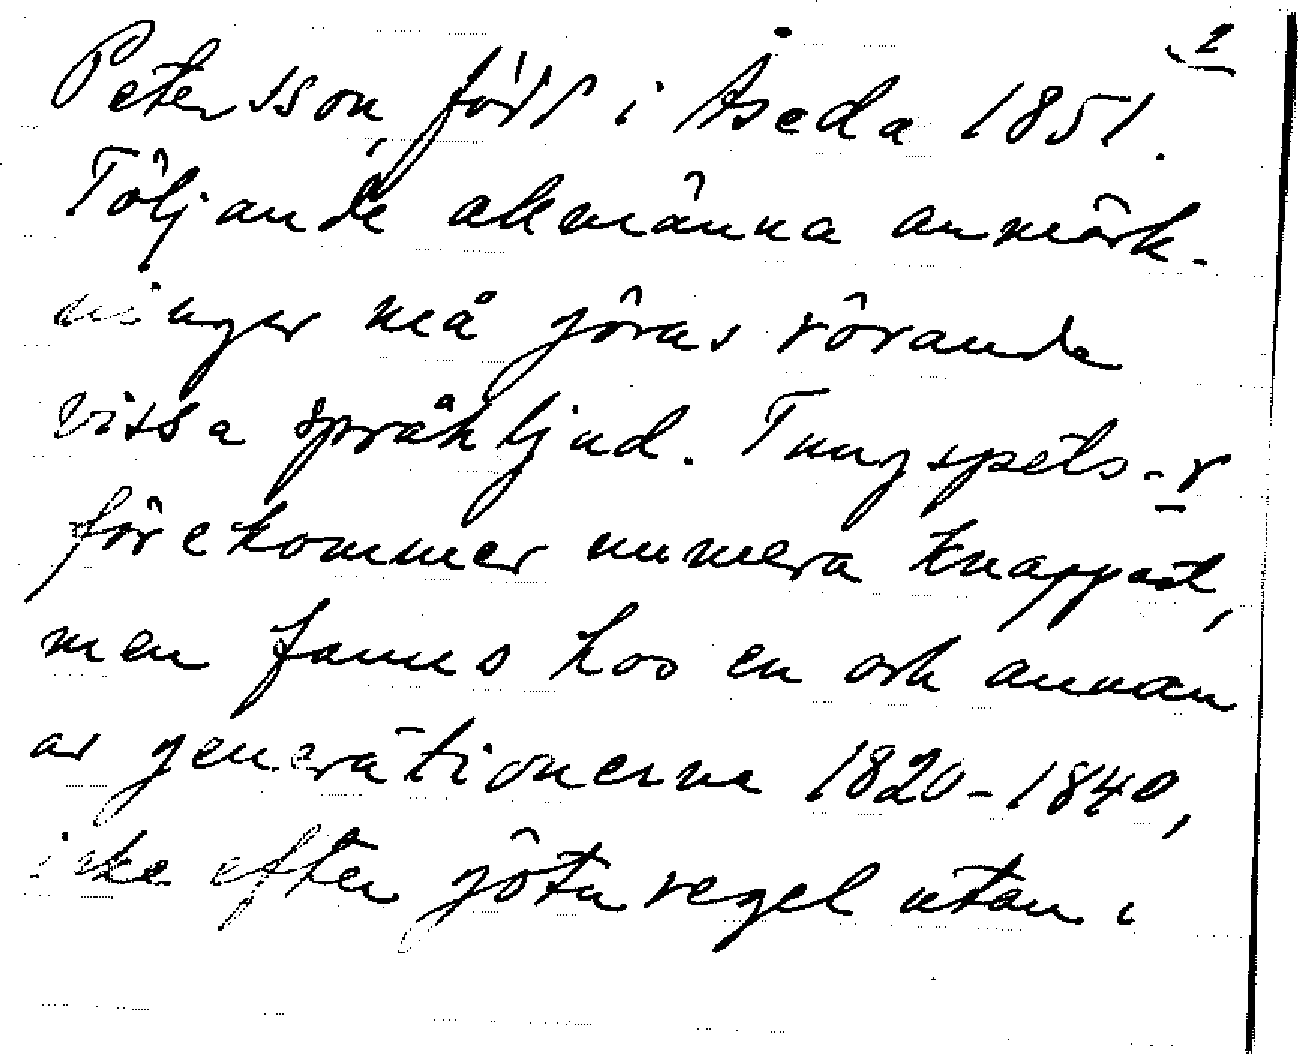 2
Petersson, född i Åseda 1851.
Följande allmänna anmärk-
ningar må göras rörande
vissa språkljud. Tungspets-r
förekommer numera knappast,
men fanns hos en och annan
av generationerna 1820-1840,
icke efter götaregel utan i